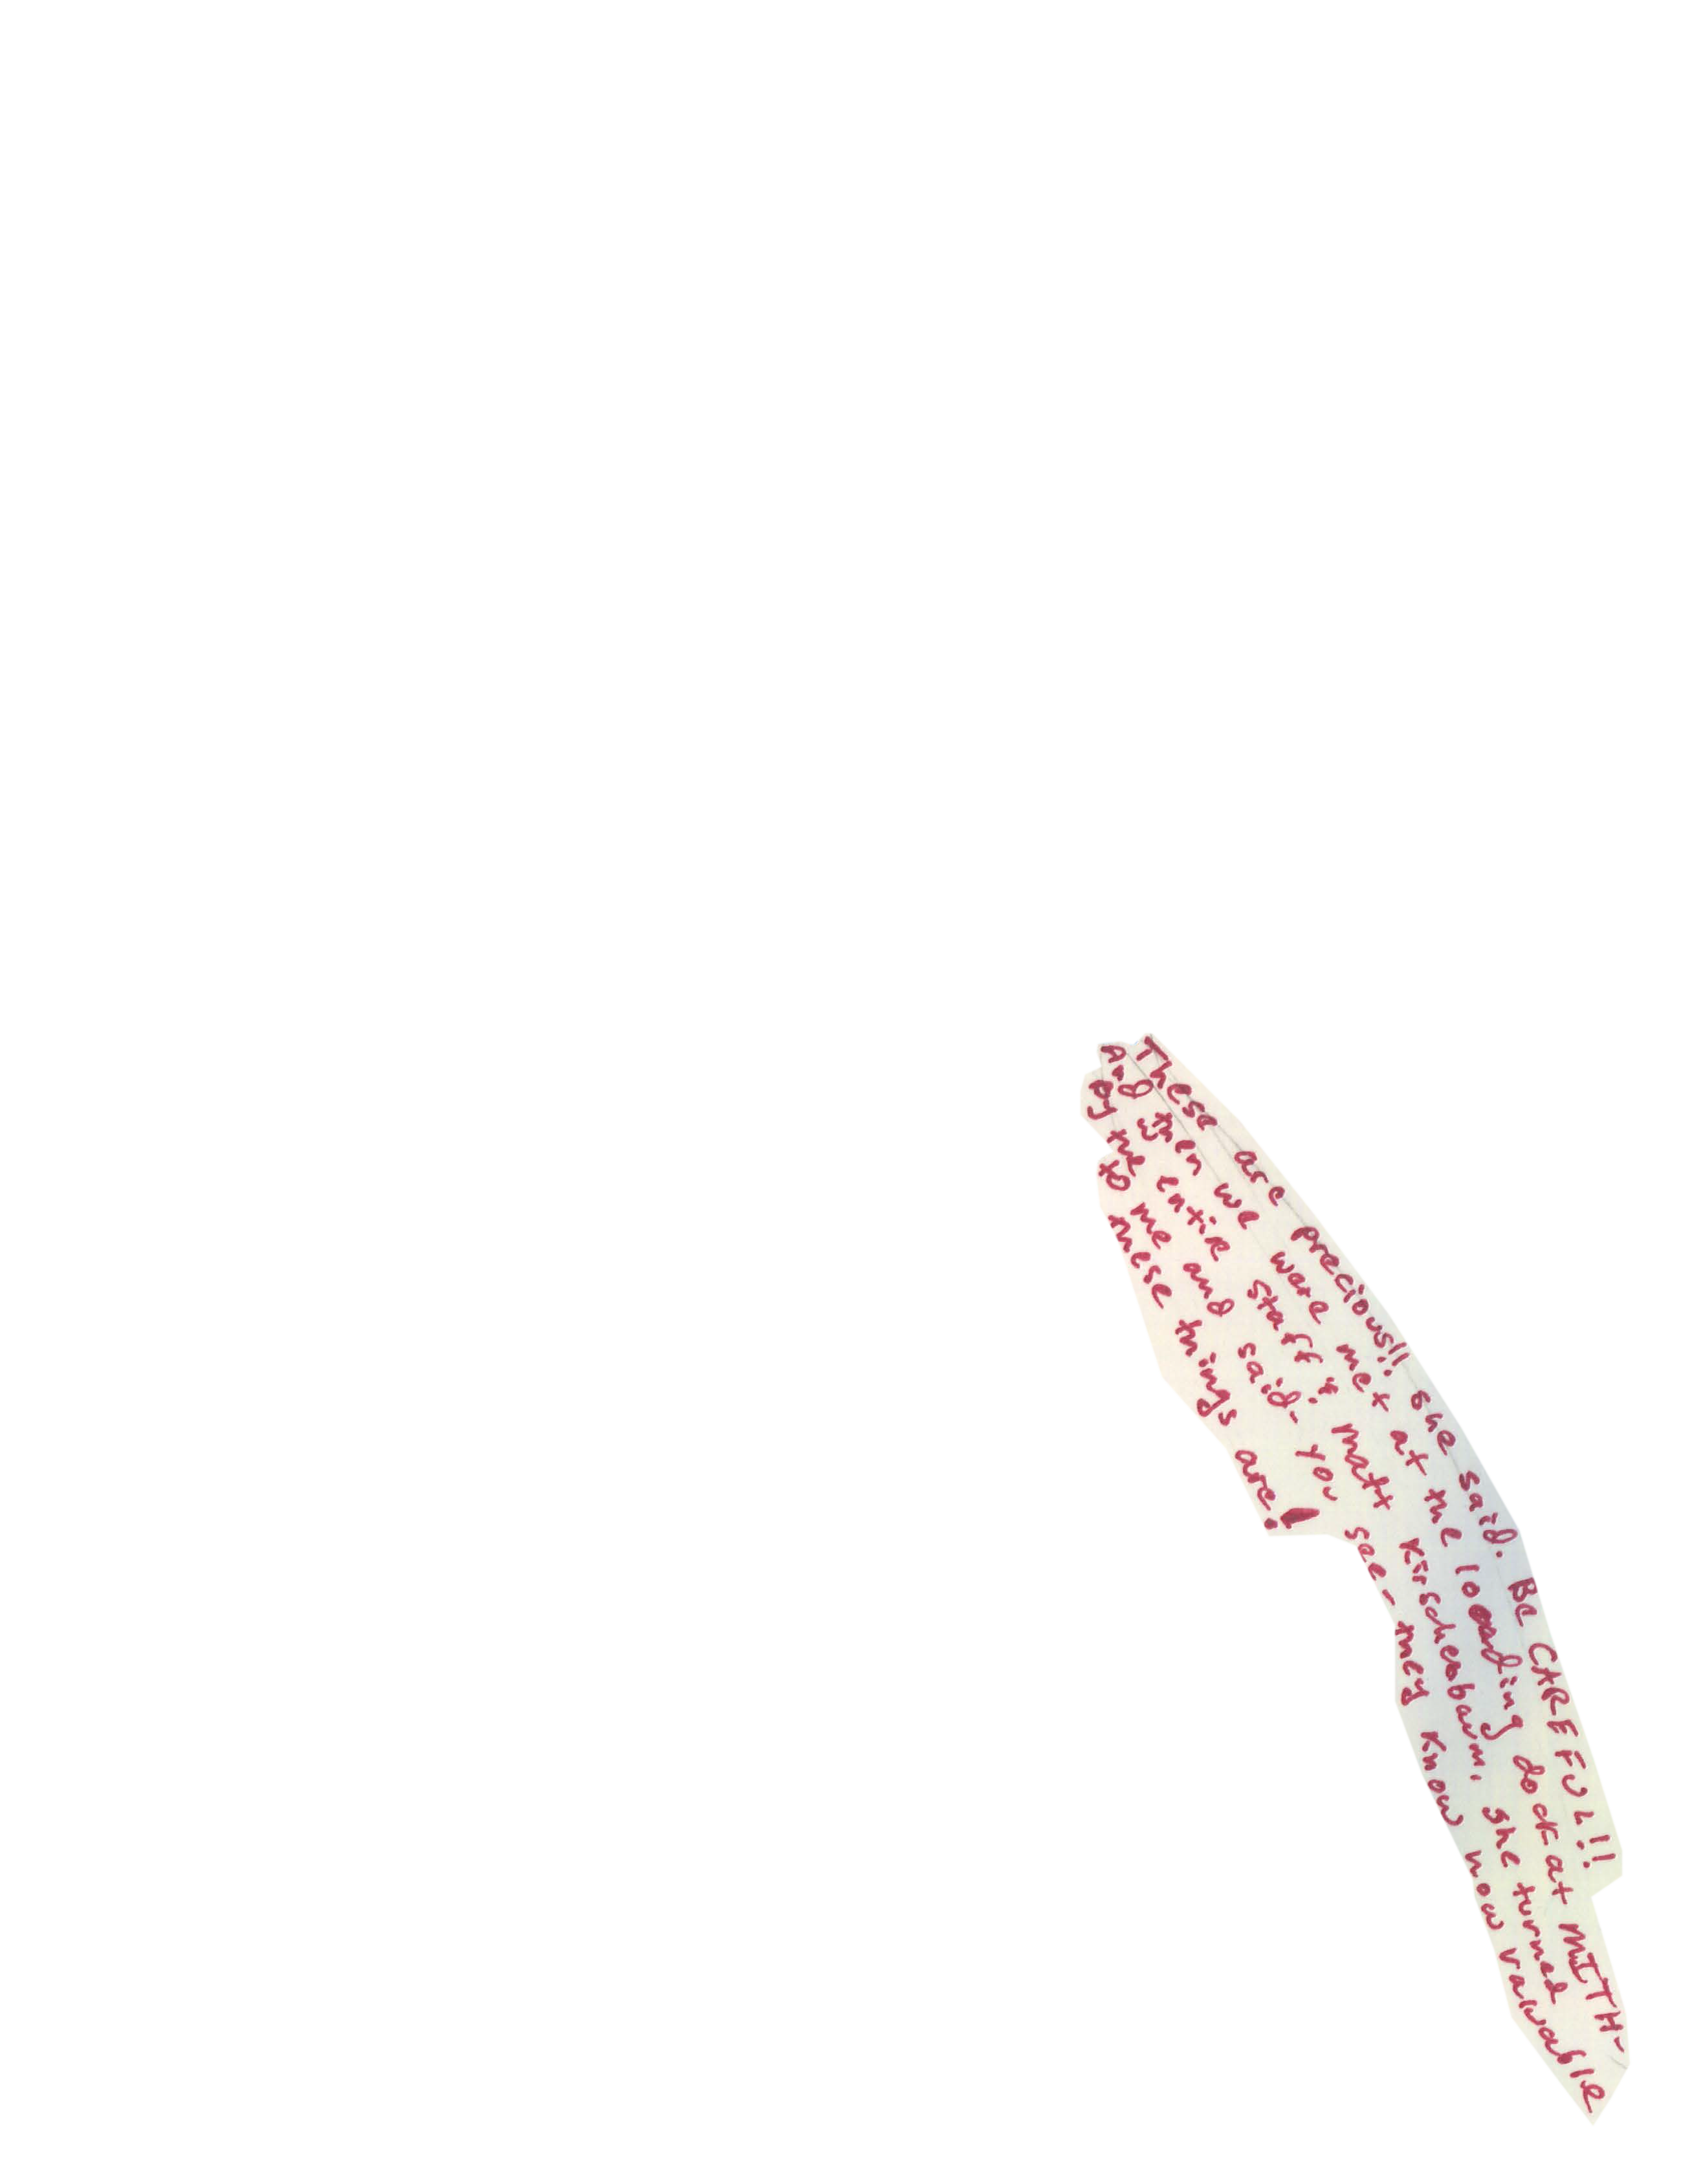 These are precious!! she said. Be CAREFUL!!
And when we were met at the loading dock at MITH-
by the entire staff + Matt Kirschenbaum, she turned
to me and said- you see- they know how valuable
these things are!